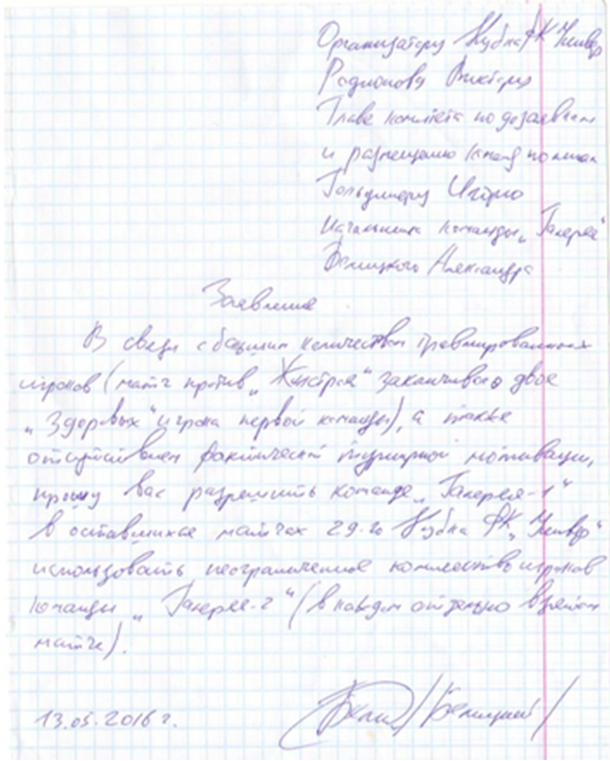 Организатору Кубка ФК "Универ
Родионову Виктору
Главе комитета по дозаявкам
и размещению команд по лигам
Игорю
Начальника команды „Галерея"
Белицкого Александра
Заявление
В связи с большим количеством травмированных
игроков (матч против „ " заканчивало двое
„Здоровых" игрока первой команды), а также
отсутствием фактической турнирной мотивации,
прошу вас разрешить команде „Галерея-1"
в оставшихся матчах 29-го Кубка ФК „Универ"
использовать неограниченное количество игроков
команды „Галерея-2" (в каждом отдельно взятом
матче).
13.05.2016 г. /Белицкий/